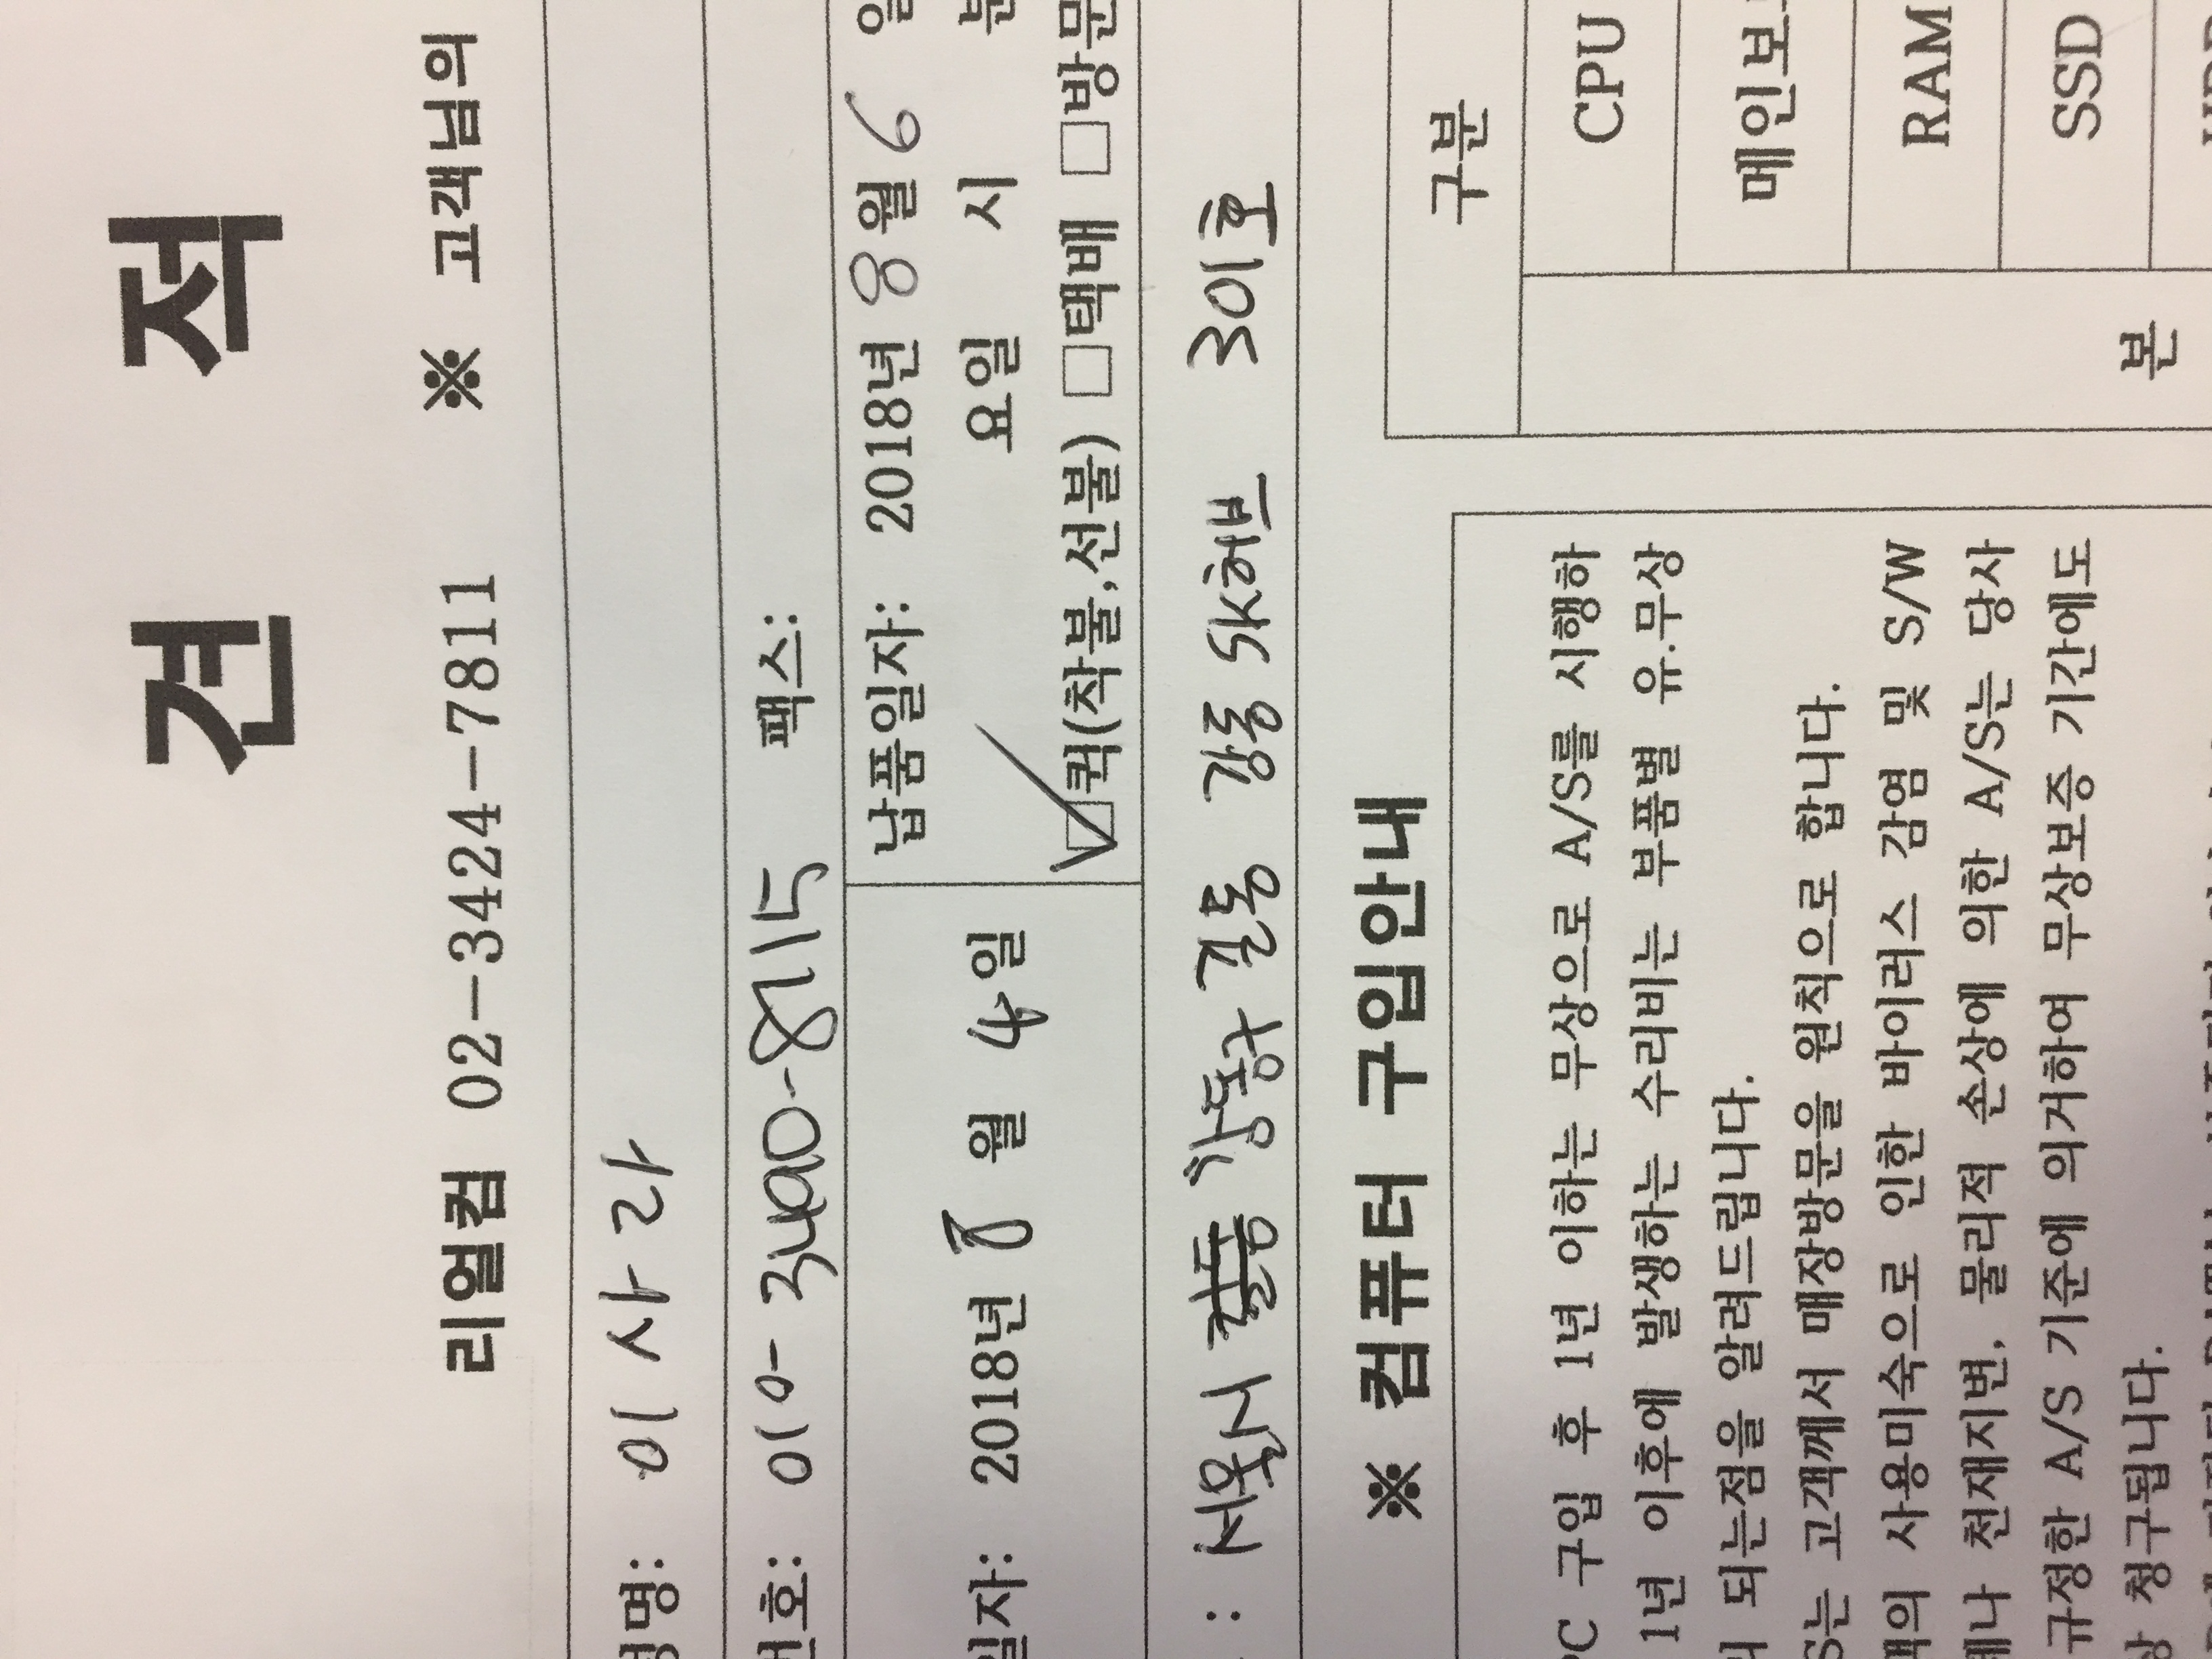 견 적
리얼컴 02-3424-7811 ※ 고객님의
명: 이사라
번호: 010-3490-8115 팩스:
일자: 2018년 8월 4일
납품일자: 2018년 8월 6일
요일 시 분
☑퀵(착불,선불) □택배 □방문
: 서울시 강동구 길동 강동 SK허브 301호
※ 컴퓨터 구입안내
PC 구입 후 1년 이하는 무상으로 A/S를 시행하
1년 이후에 발생하는 수리비는 부품별 유.무상
되는점을 알려드립니다.
S는 고객께서 매장방문을 원칙으로 합니다.
객의 사용미숙으로 인한 바이러스 감염 및 S/W
제나 천재지변, 물리적 손상에 의한 A/S는 당사
규정한 A/S 기준에 의거하여 무상보증 기간에도
상 청구됩니다.
구분
CPU
메인보
RAM
SSD
본